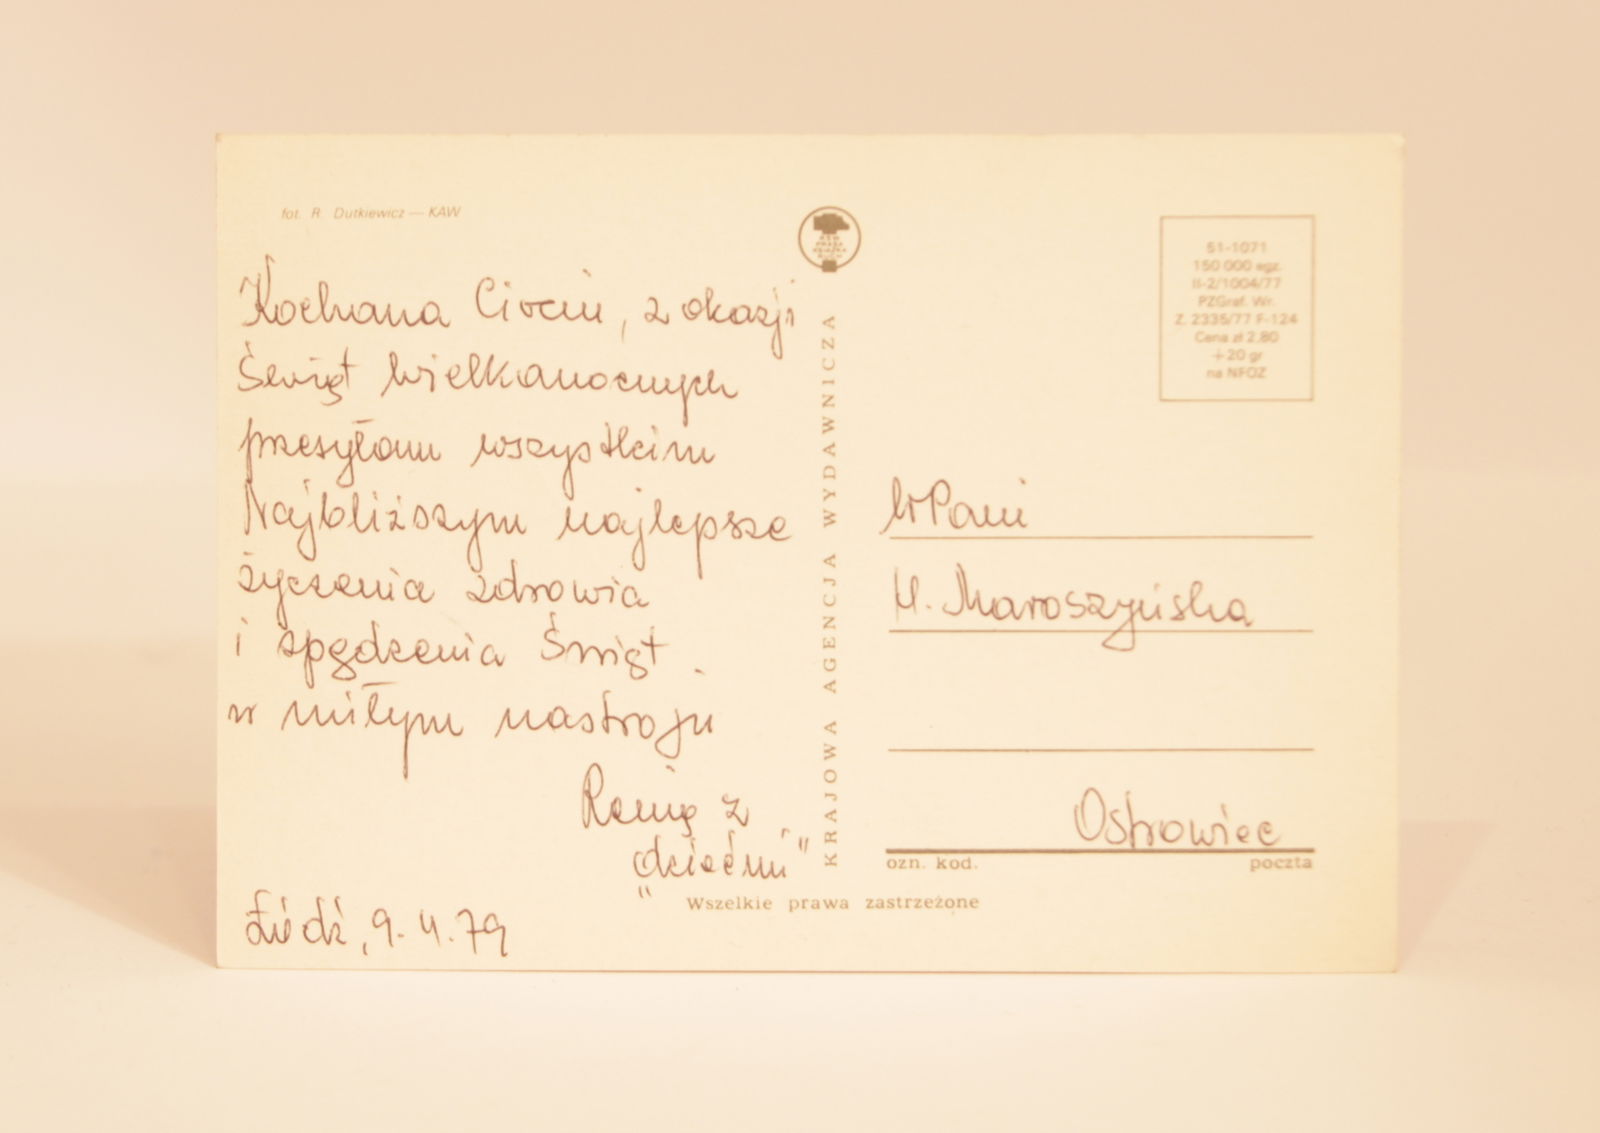 fot. R. Dutkiewicz — KAW
Kochana Ciociu, z okazji
Świąt Wielkanocnych
przesyłam wszystkim
Najbliższym najlepsze
życzenia zdrowia
i spędzenia Świąt
w miłym nastroju
z
"dziećmi"
Łódź, 9.4.79
KRAJOWA AGENCJA WYDAWNICZA
Wszelkie prawa zastrzeżone
51-1071
150 000 egz.
II-2/1004/77
PZGraf. Wr.
Z. 2335/77 F-124
Cena zł 2,80
+20 gr
na NFOZ
WPani
Maroszyńska
Ostrowiec
ozn. kod. poczta